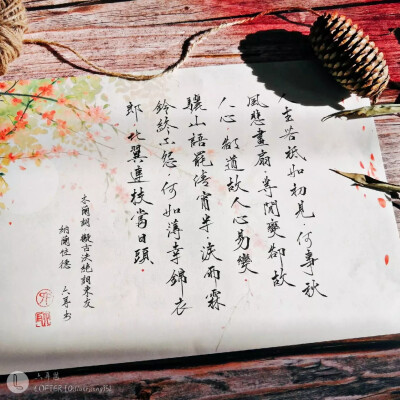 人生若祇如初見。何事秋
風悲畫扇。等閒變卻故
人心。卻道故人心易變。
驪山語罷清宵半。淚雨霖
鈴終不怨。何如薄幸錦衣
郎比翼連枝當日願
木蘭詞 擬古決絕詞柬友
納蘭性德
LOFTER ID: